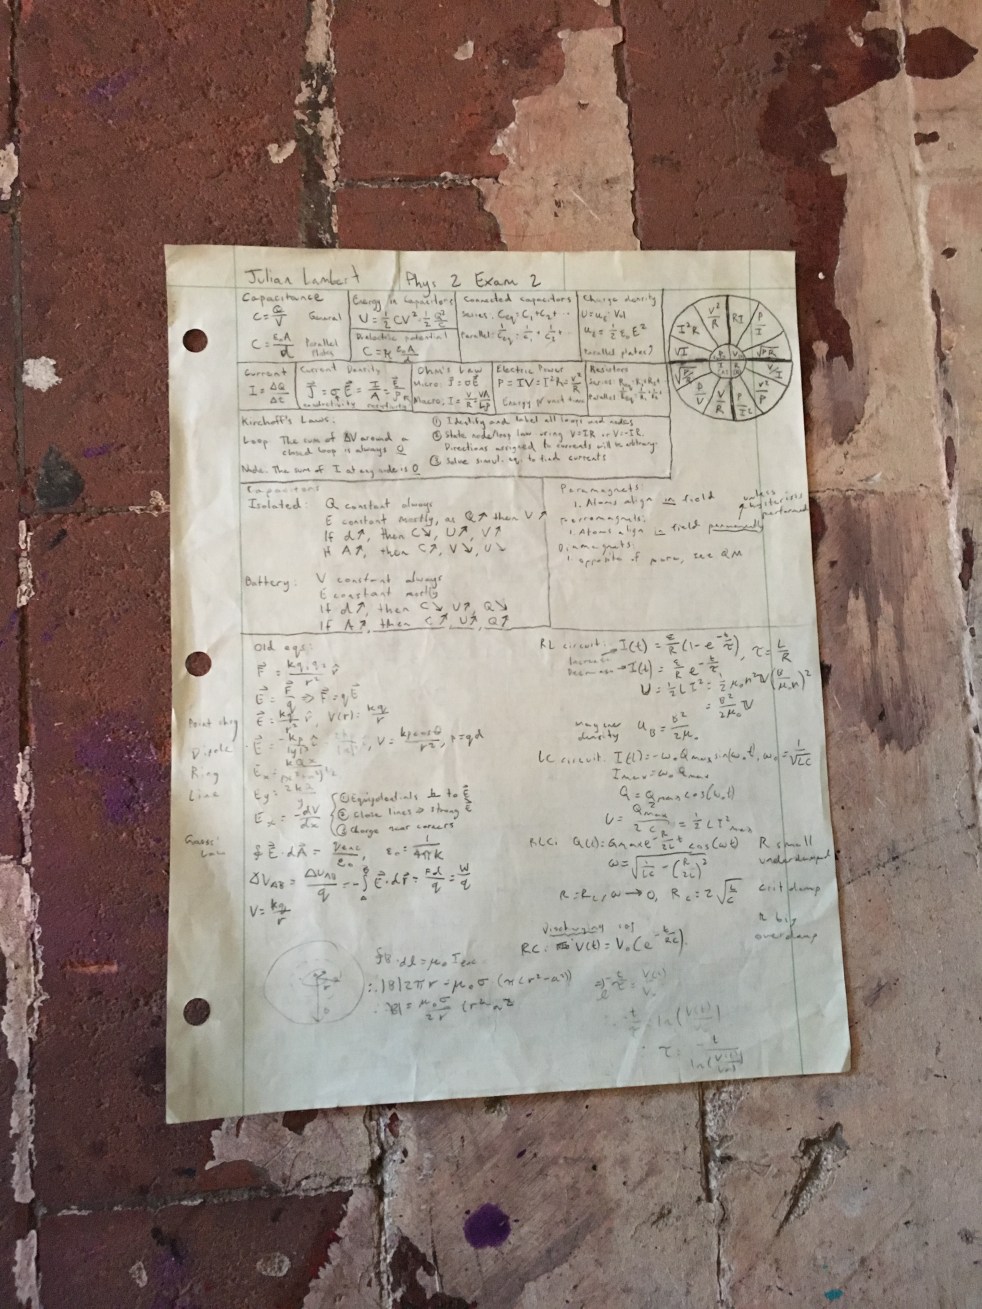 Julian Lambert Phys 2 Exam 2
Capacitance
C = Q/V General
C = ε₀A/d Parallel Plates
Energy in Capacitors
U = ½CV² = ½ Q²/C
Dielectric potential
C = κ ε₀A/d
Connected capacitors
Series: C_eq = C₁ + C₂ + ...
Parallel: 1/C_eq = 1/C₁ + 1/C₂ ...
Charge density
U = u_E · Vol
u_E = ½ε₀E²
Parallel plates?
I²R V²/R RI P/I √PR V/I V²/P P/I² V/R P/V VI
P V I R
Current
I = ΔQ/Δt
Current Density
J = σE = I/A = E/ρ
conductivity resistivity
Ohm's Law
Micro: J = σE
Macro: I = V/R = VA/Lρ
Electric Power
P = IV = I²R = V²/R
Energy
Resistors
Series:
Parallel:
Kirchoff's Laws:
Loop The sum of ΔV around a
closed loop is always 0
Node: The sum of I at any node is 0
① Identify and label all loops and nodes
② State node/loop law using V=IR or V=-IR.
Directions assigned to currents will be arbitrary
③ Solve simul. eq. to find currents
Capacitors
Isolated: Q constant always
E constant mostly, as Q↗ then V↗
If d↗, then C↘, U↗, V↗
If A↗, then C↗, V↘, U↘
Battery: V constant always
E constant mostly
If d↗, then C↘, U↗, Q↘
If A↗, then C↗, U↗, Q↗
Paramagnets
1. Atoms align in field
Ferromagnets:
1. Atoms align in field permanently
unless hysteresis performed
Diamagnets:
1. opposite of para, see QM
Old eqs:
F = kq₁q₂/r² r̂
E = F/q ⇒ F = qE
Point chrg E = kq/r² r̂, V(r) = kq/r
Dipole V = kpcosθ/r², p = qd
Ring
Line E_y = 2kλ/y
E_x = -dV/dx
① Equipotentials ⊥ to E
② Close lines ⇒ strong E
③ Charge near corners
Gauss' Law ∮E·dA = q_enc/ε₀, ε₀ = 1/4πk
ΔV_AB = ΔU_AB/q = -∫E·dr = Fd/q = W/q
V = kq/r
RL circuit: Increase → I(t) = ε/R (1 - e^(-t/τ)), τ = L/R
Decrease → I(t) = ε/R e^(-t/τ)
U = ½LI² = ½μ₀n²V(B/μ₀n)²
= B²/2μ₀ V
magnetic density u_B = B²/2μ₀
LC circuit: I(t) = -ω₀Q_max sin(ω₀t), ω₀ = 1/√LC
I_max = ω₀Q_max
Q = Q_max cos(ω₀t)
U = Q²_max/2C = ½LI²_max
RLC: Q(t) = Q_max e^(-R/2L t) cos(ωt) R small underdamped
ω = √(1/LC - (R/2L)²)
R = R_c, ω → 0, R_c = 2√(L/C) crit damp
R big overdamp
Discharging
RC: V(t) = V₀(e^(-t/RC))
∮B·dl = μ₀I_enc
∴ |B|2πr = μ₀σ (π(r²-a²))
∴ |B| = μ₀σ/2r
⇒ e^(-t/τ) = V(t)/V₀
ln(V(t)/V₀)
τ = -t/ln(V(t)/V₀)